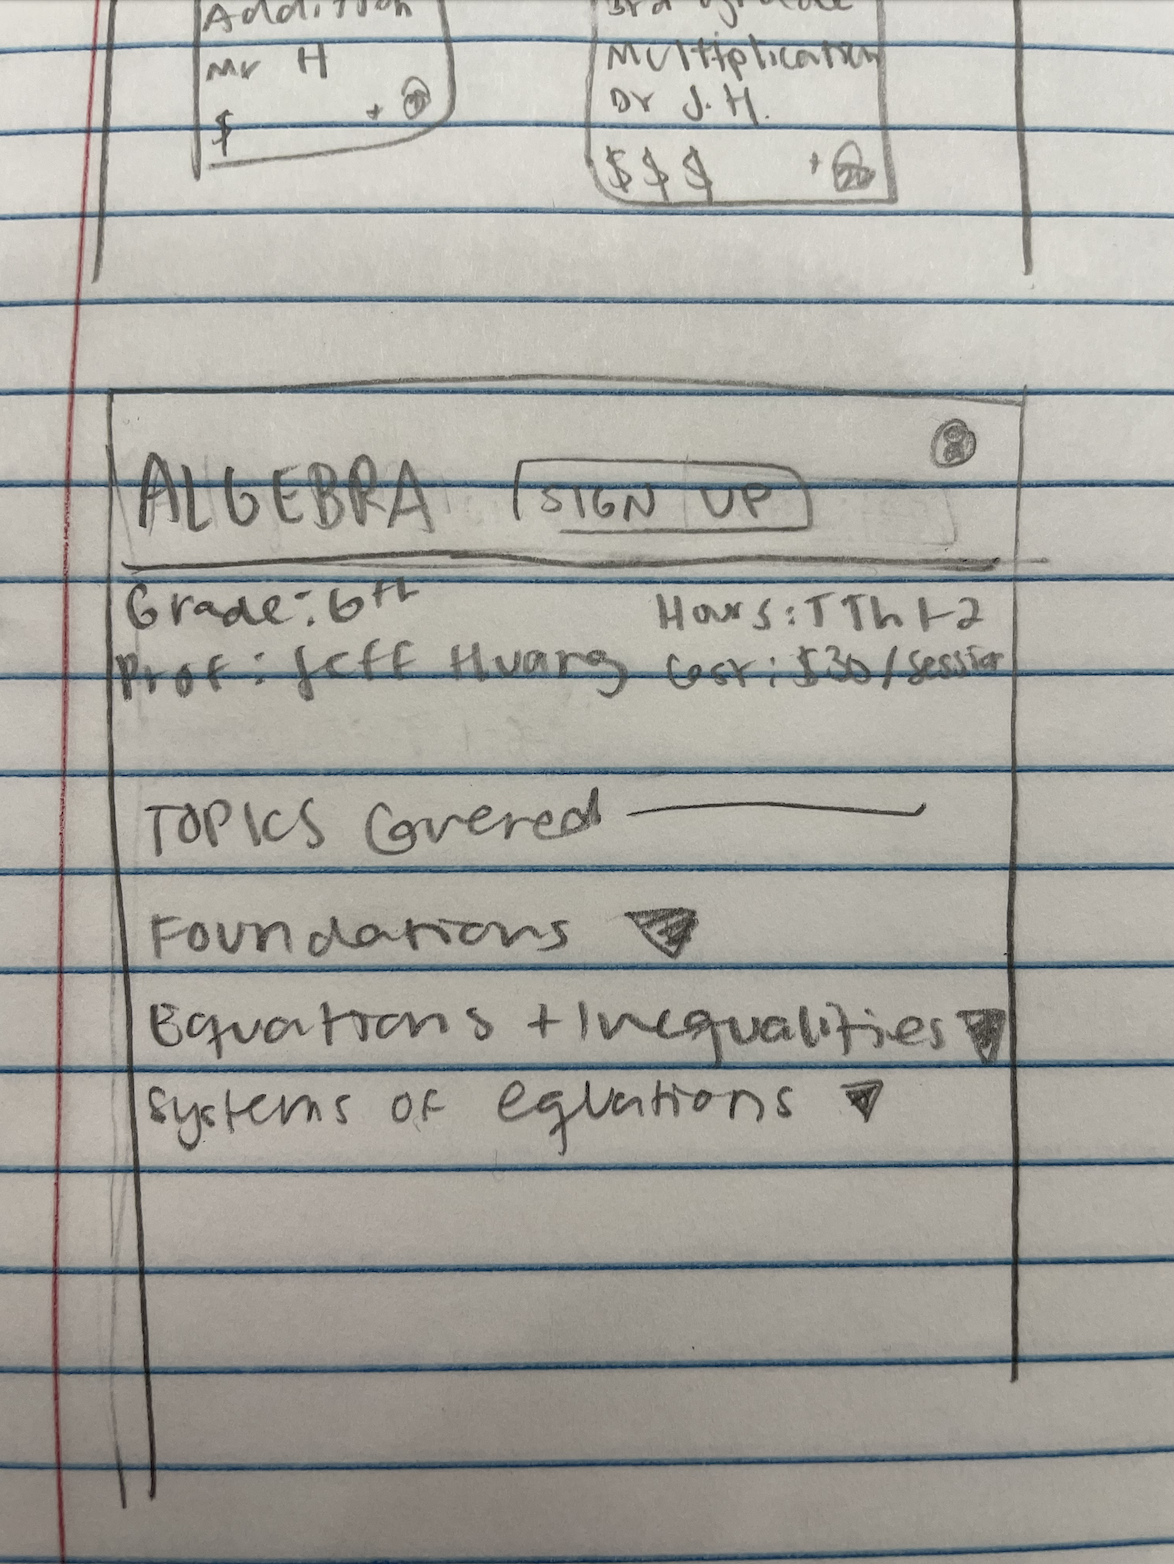 Addition
Mr H
$ +
3rd grade
Multiplication
Dr J.H.
$$$ +
ALGEBRA SIGN UP
Grade: 6th Hours: TTh 1-2
Prof: Jeff Huang Cost: $30/session
TOPICS Covered
Foundations
Equations + Inequalities
Systems of equations